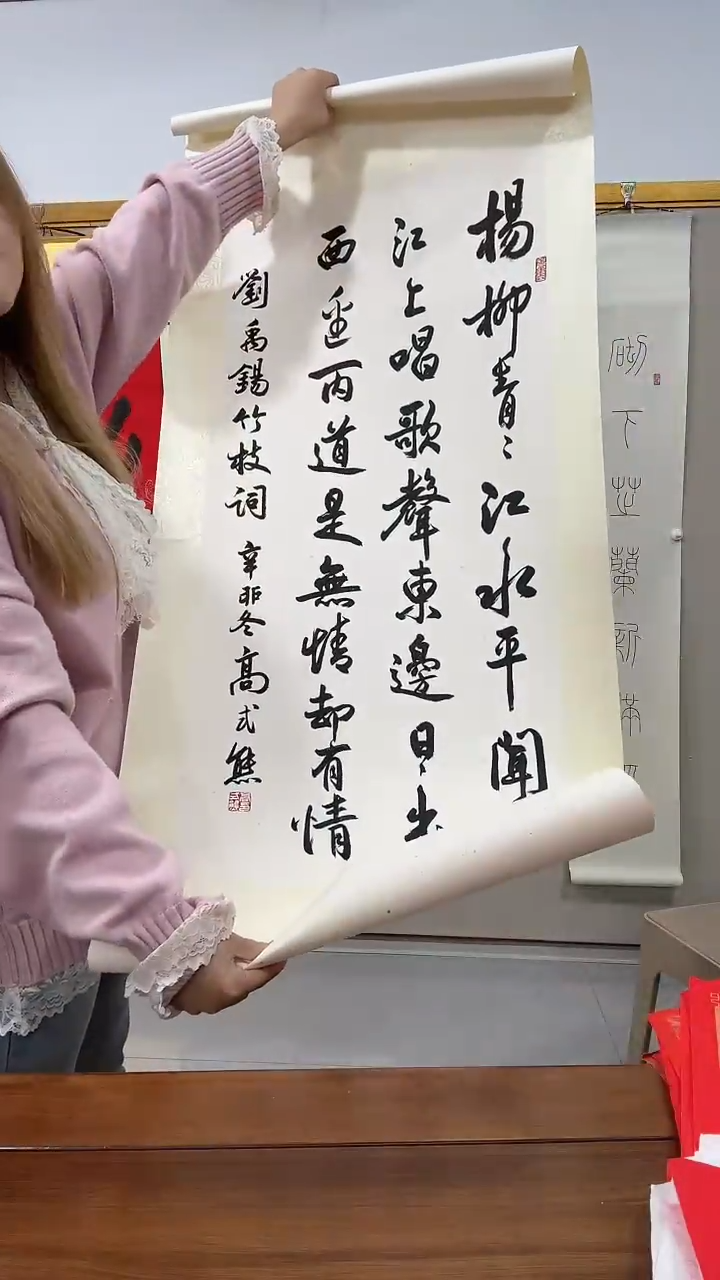 楊柳青〻江水平聞
江上唱歌聲東邊日出
西邊雨道是無情却有情
劉禹錫竹枝詞 辛卯冬 高式熊
砌下芝蘭新滿